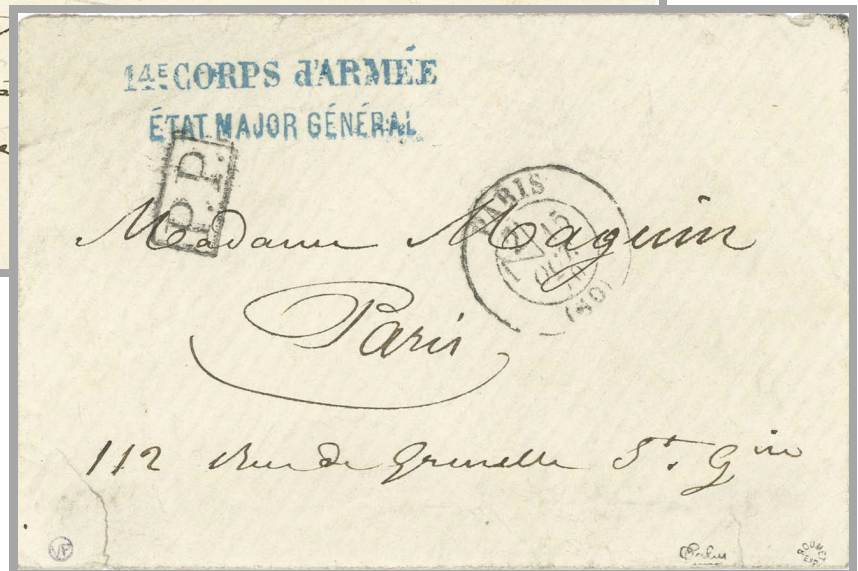 14E CORPS d'ARMÉE
ÉTAT MAJOR GÉNÉRAL
P.P.
PARIS
(60)
Madame Maguin
Paris
112 Rue de Grenelle St. Gin
VF